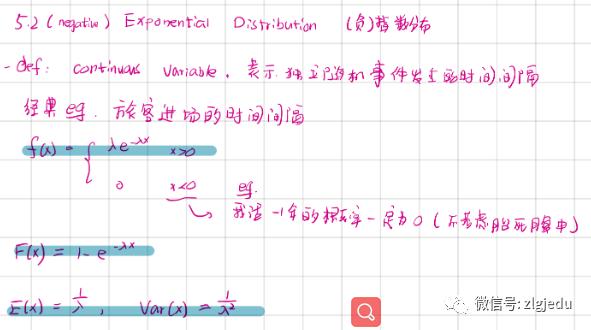 5.2 (negative) Exponential Distribution (负)指数分布
- def: continuous variable. 表示独立随机事件发生的时间间隔
经典eg. 旅客进场的时间间隔
f(x) = { λe^-λx x>0
0 x<0 eg.
我活-1年的概率一定为0 (不考虑胎死腹中)
F(x) = 1 - e^-λx
E(x) = 1/λ, Var(x) = 1/λ²
微信号: zlgjedu